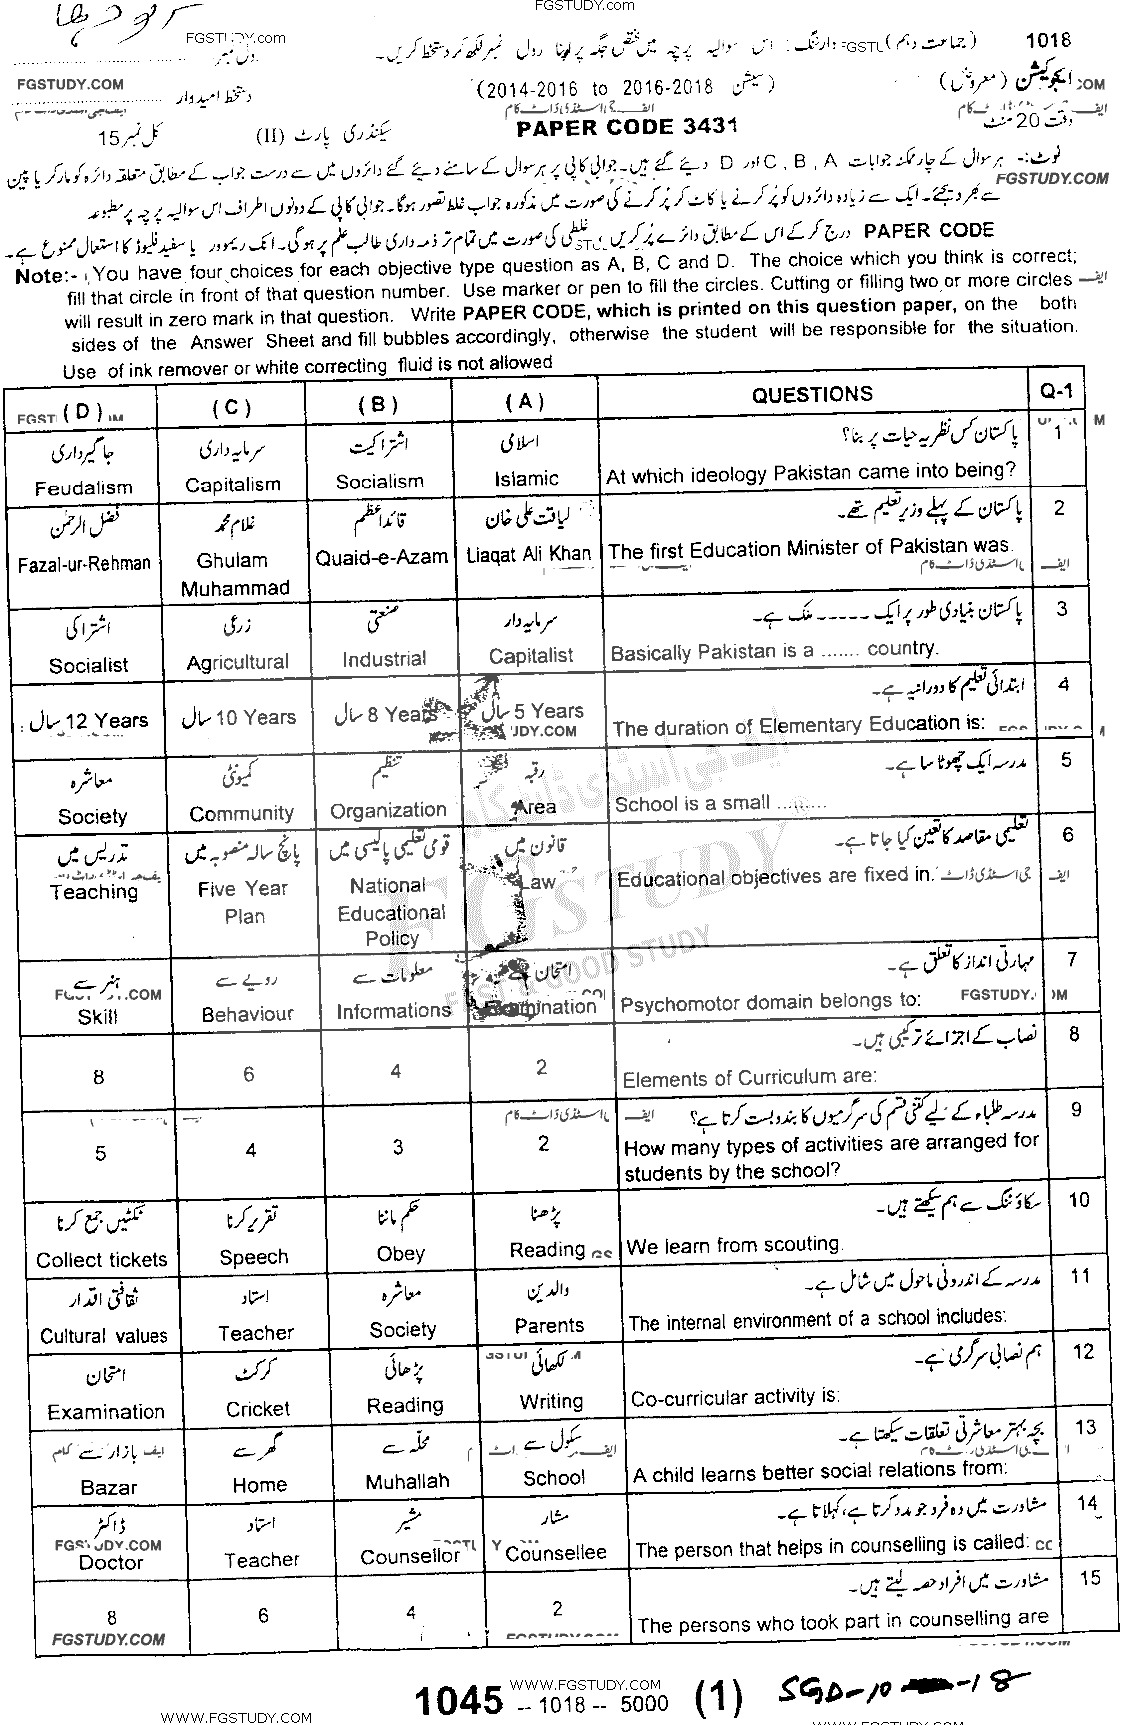 FGSTUDY.com
سرگودھا
1018 (جماعت دہم) وارننگ: اس سوالیہ پرچہ میں مختص جگہ پر اپنا رول نمبر لکھ کر دستخط کریں۔
FGSTUDY.com
رول نمبر
ایجوکیشن (معروضی) (سیشن 2014-2016 to 2016-2018)
FGSTUDY.COM
دستخط امیدوار
وقت 20 منٹ PAPER CODE 3431 سیکنڈری پارٹ (II) کل نمبر 15
نوٹ:- ہر سوال کے چار ممکنہ جوابات A , B , C اور D دیے گئے ہیں۔ جوابی کاپی پر ہر سوال کے سامنے دیے گئے دائروں میں سے درست جواب کے مطابق متعلقہ دائرہ کو مارکر یا پین
FGSTUDY.COM
سے بھر دیجئے۔ ایک سے زیادہ دائروں کو پُر کرنے یا کاٹ کر پُر کرنے کی صورت میں مذکورہ جواب غلط تصور ہوگا۔ جوابی کاپی کے دونوں اطراف اس سوالیہ پرچہ پر مطبوعہ
PAPER CODE درج کر کے اس کے مطابق دائرے پُر کریں، غلطی کی صورت میں تمام تر ذمہ داری طالب علم پر ہوگی۔ انک ریموور یا سفید فلیوڈ کا استعمال ممنوع ہے۔
Note:- You have four choices for each objective type question as A, B, C and D. The choice which you think is correct;
fill that circle in front of that question number. Use marker or pen to fill the circles. Cutting or filling two or more circles
will result in zero mark in that question. Write PAPER CODE, which is printed on this question paper, on the both
sides of the Answer Sheet and fill bubbles accordingly, otherwise the student will be responsible for the situation.
Use of ink remover or white correcting fluid is not allowed
(D) (C) (B) (A) QUESTIONS Q-1
جاگیرداری سرمایہ داری اشتراکیت اسلامی پاکستان کس نظریہ حیات پر بنا؟ 1
Feudalism Capitalism Socialism Islamic At which ideology Pakistan came into being?
فضل الرحمٰن غلام محمد قائداعظم لیاقت علی خان پاکستان کے پہلے وزیر تعلیم تھے۔ 2
Fazal-ur-Rehman Ghulam Quaid-e-Azam Liaqat Ali Khan The first Education Minister of Pakistan was.
Muhammad
اشتراکی زرعی صنعتی سرمایہ دار پاکستان بنیادی طور پر ایک ----- ملک ہے۔ 3
Socialist Agricultural Industrial Capitalist Basically Pakistan is a ....... country.
ابتدائی تعلیم کا دورانیہ ہے۔ 4
12 Years سال 10 Years سال 8 Years سال 5 Years سال The duration of Elementary Education is:
معاشرہ کمیونٹی تنظیم رقبہ مدرسہ ایک چھوٹا سا ہے۔ 5
Society Community Organization Area School is a small .........
تدریس میں پانچ سالہ منصوبہ میں قومی تعلیمی پالیسی میں قانون میں تعلیمی مقاصد کا تعین کیا جاتا ہے۔ 6
Teaching Five Year National Law Educational objectives are fixed in.
Plan Educational
Policy
ہنر سے رویے سے معلومات سے امتحان سے مہارتی انداز کا تعلق ہے۔ 7
Skill Behaviour Informations Examination Psychomotor domain belongs to:
نصاب کے اجزائے ترکیبی ہیں۔ 8
8 6 4 2 Elements of Curriculum are:
مدرسہ طلباء کے لیے کتنی قسم کی سرگرمیوں کا بندوبست کرتا ہے؟ 9
5 4 3 2 How many types of activities are arranged for
students by the school?
ٹکٹیں جمع کرنا تقریر کرنا حکم ماننا پڑھنا سکاؤٹنگ سے ہم سیکھتے ہیں۔ 10
Collect tickets Speech Obey Reading We learn from scouting.
ثقافتی اقدار استاد معاشرہ والدین مدرسہ کے اندرونی ماحول میں شامل ہے۔ 11
Cultural values Teacher Society Parents The internal environment of a school includes:
امتحان کرکٹ پڑھائی لکھائی ہم نصابی سرگرمی ہے۔ 12
Examination Cricket Reading Writing Co-curricular activity is:
بازار سے گھر سے محلہ سے سکول سے بچہ بہتر معاشرتی تعلقات سیکھتا ہے۔ 13
Bazar Home Muhallah School A child learns better social relations from:
ڈاکٹر استاد مشیر مشار مشاورت میں وہ فرد جو مدد کرتا ہے، کہلاتا ہے۔ 14
FGSTUDY.COM
Doctor Teacher Counsellor Counsellee The person that helps in counselling is called:
مشاورت میں افراد حصہ لیتے ہیں۔ 15
8 6 4 2 The persons who took part in counselling are
FGSTUDY.COM
FGSTUDY
FAST & GOOD STUDY
1045 -- 1018 -- 5000 (1) SGD-10-18
WWW.FGSTUDY.COM
WWW.FGSTUDY.COM
WWW.FGSTUDY.COM